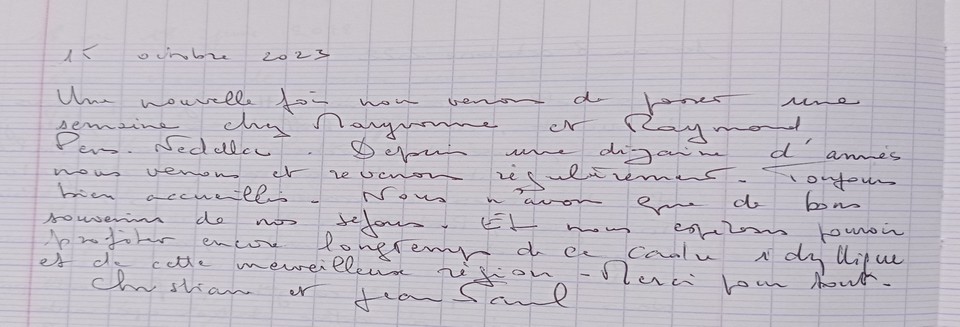 15 octobre 2023
Une nouvelle fois nous venons de passer une
semaine chez Maryvonne et Raymond
Depuis une dizaine d'années
nous venons et revenons régulièrement - Toujours
bien accueillis. Nous n'avons que de bons
souvenirs de nos séjours. Et nous espérons pouvoir
profiter encore longtemps de ce cadre idyllique
et de cette merveilleuse région - Merci pour tout -
Christiane et Jean Paul